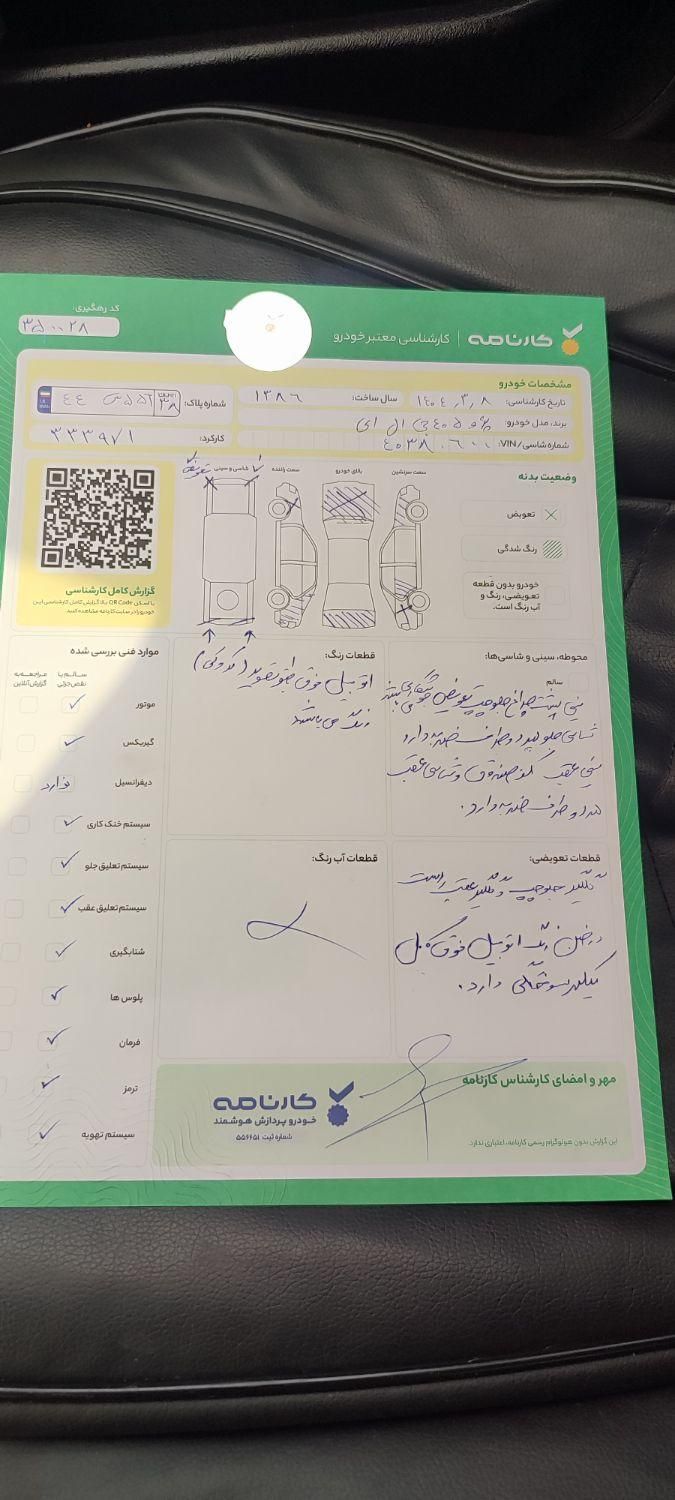 کد رهگیری:
۳۵۰۰۲۸
کارنامه | کارشناسی معتبر خودرو
مشخصات خودرو
تاریخ کارشناسی: ۱۴۰۴٫۳٫۸
سال ساخت: ۱۳۸۶
شماره پلاک:
برند، مدل خودرو: پژو ۴۰۵ جی ال ای
شماره شاسی/VIN: ۴۰۳۸۰۶۰۰
کارکرد: ۳۳۳۹۷۱
وضعیت بدنه
سمت سرنشین
بالای خودرو
سمت راننده
شاسی و سینی
تعویض
رنگ شدگی
خودرو بدون قطعه
تعویضی، رنگ و
آب رنگ است.
گزارش کامل کارشناسی
با اسکن QR Code بالا گزارش کامل کارشناسی این
خودرو را در سایت کارنامه مشاهده کنید.
محوطه، سینی و شاسی‌ها:
سالم
سینی پشت چراغ جلو چپ تعویض
شاسی جلو هر دو طرف ضربه دارد
سینی عقب کف صندوق و شاسی عقب
هر دو طرف ضربه دارد.
قطعات رنگ:
اتومبیل فوق
رنگ می باشد
قطعات تعویضی:
گلگیر جلو چپ و گلگیر عقب راست
در ضمن رنگ اتومبیل فوق
دارد.
قطعات آب رنگ:
موارد فنی بررسی شده
سالم یا
نقص جزئی
مراجعه به
گزارش آنلاین
موتور
گیربکس
دیفرانسیل ندارد
سیستم خنک کاری
سیستم تعلیق جلو
سیستم تعلیق عقب
شتابگیری
پلوس ها
فرمان
ترمز
سیستم تهویه
مهر و امضای کارشناس کارنامه
این گزارش بدون هولوگرام رسمی کارنامه، اعتباری ندارد.
کارنامه
خودرو پردازش هوشمند
شماره ثبت ۵۵۶۶۵۱